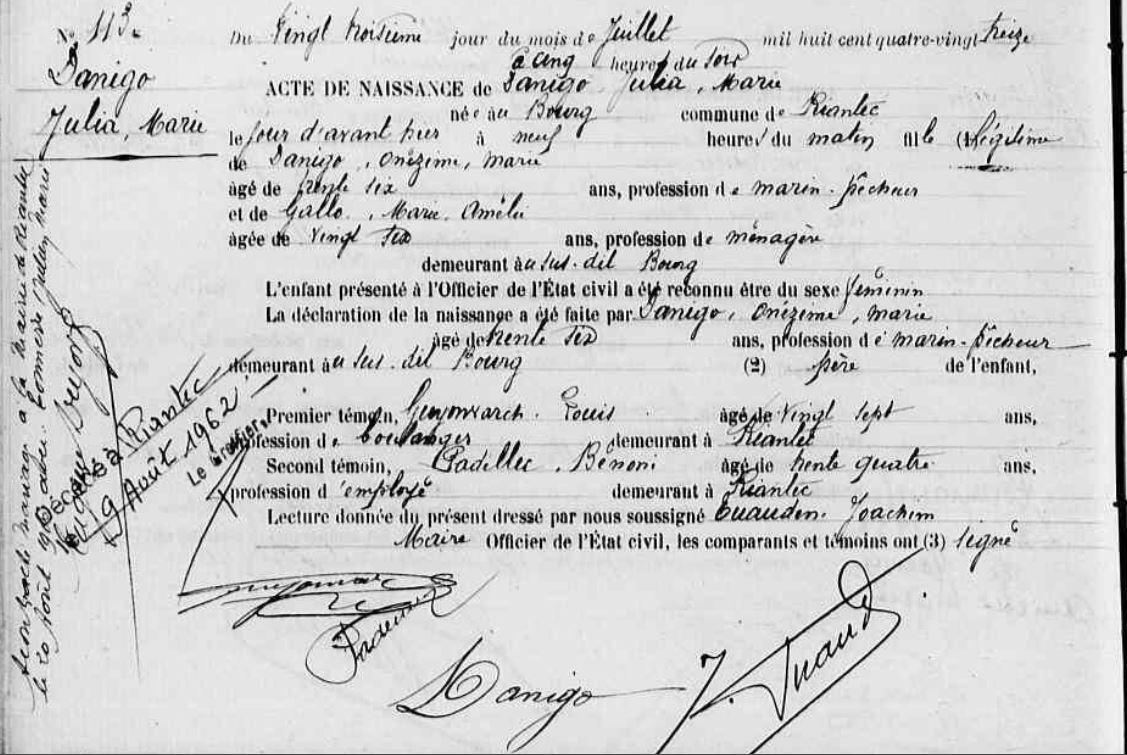 N° 113.
Danigo
Julia, Marie
Du Vingt troisième jour du mois de Juillet mil huit cent quatre-vingt treize
à cinq heures du soir
ACTE DE NAISSANCE de Danigo, Julia, Marie
née au Bourg commune de Riantec
le jour d'avant hier à neuf heures du matin fille (1) légitime
de Danigo, Onézime, Marie
âgé de trente six ans, profession de marin-pêcheur
et de Gallo, Marie, Amélie
âgée de Vingt six ans, profession de ménagère
demeurant au sus-dit Bourg
L'enfant présenté à l'Officier de l'État civil a été reconnu être du sexe féminin
La déclaration de la naissance a été faite par Danigo, Onézime, Marie
âgé de trente six ans, profession de marin-pêcheur
demeurant au sus-dit Bourg (2) père de l'enfant,
Premier témoin, Guyonvarch Louis âgé de Vingt sept ans,
profession de boulanger demeurant à Riantec
Second témoin, Padellec, Bénoni âgé de trente quatre ans,
profession d'employé demeurant à Riantec
Lecture donnée du présent dressé par nous soussigné Joachim
Maire Officier de l'État civil, les comparants et témoins ont (3) signé
a contracté mariage à la mairie de Riantec
le 20 Août
Eugène
Décédé à Riantec
19 Août 1962
Le Greffier,
Danigo